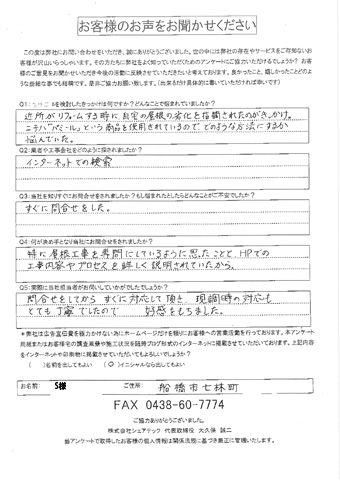 お客様のお声をお聞かせください
この度は弊社にお問い合わせをいただき、誠にありがとうございました。世の中には弊社の存在やサービスをご存知ないお
客様が沢山いらっしゃいます。その方たちに弊社をよく知っていただくためのアンケートにご協力いただけるでしょうか?お
客様のご意見をお聞かせいただき今後の活動に反映させていただきたいと考えております。良かったこと、嬉しかったことどのよ
うな些細な事でも結構です。是非ご協力お願い致します。(出来るだけ具体的に書いていただければ幸いです)
Q1:
を検討したきっかけは何ですか?どんなことで悩まれていましたか?
近所がリフォームする時に自宅の屋根の劣化を指摘されたのがきっかけ。
ニチハ「パミール」という商品を使用されているので、どのような方法にするか
悩んでいた。
Q2:業者や工事会社をどのように探されましたか?
インターネットでの検索
Q3:当社を知りすぐにお問合せをされましたか?もし悩まれたとしたらどんなことがご不安でしたか?
すぐに問合せをした。
Q4:何が決め手となり当社にお問合せをされましたか?
特に屋根工事を専門にしているように思ったことと、HPでの
工事内容やプロセスを詳しく説明されていたから。
Q5:実際に当社担当者がお伺いしていかがでしたでしょうか?
問合せをしてから すぐに対応して頂き、現調時の対応も
とても丁寧でしたので 好感をもちました。
*弊社は広告宣伝費を極力かけない為にホームページだけを頼りにお客様への営業活動を行っております。本アンケート
用紙またはお客様宅の調査風景や施工状況を随時ブログ形式のインターネットに掲載させていただいております。上記内容
をインターネットや印刷物に掲載させていただいてもよろしいでしょうか?
( )名前を出しても良い (○)イニシャルなら出してもよい
お名前: S様 ご住所: 船橋市七林町
FAX 0438-60-7774
ご協力ありがとうございました。
株式会社シェアテック 代表取締役 大久保 誠二
当アンケートで取得したお客様の個人情報は関係法規に基づき厳正に管理いたします。